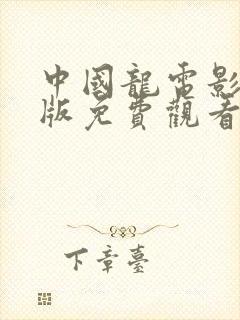 中國龍電影
版免費觀看
下章臺